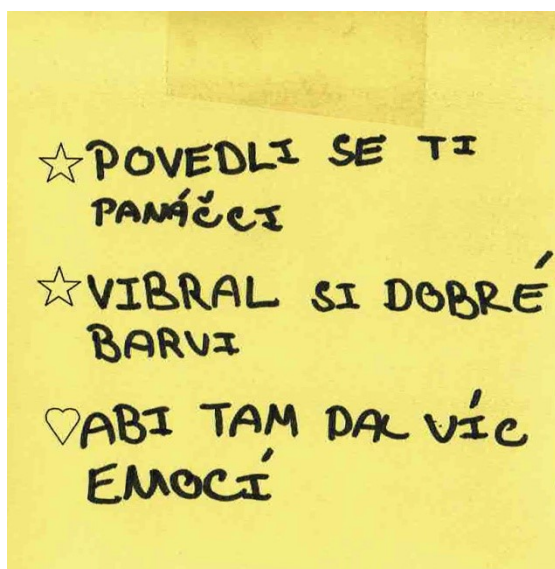 ☆ POVEDLI SE TI
PANÁČCI
☆ VIBRAL SI DOBRÉ
BARVI
♡ ABI TAM DAL VÍC
EMOCÍ